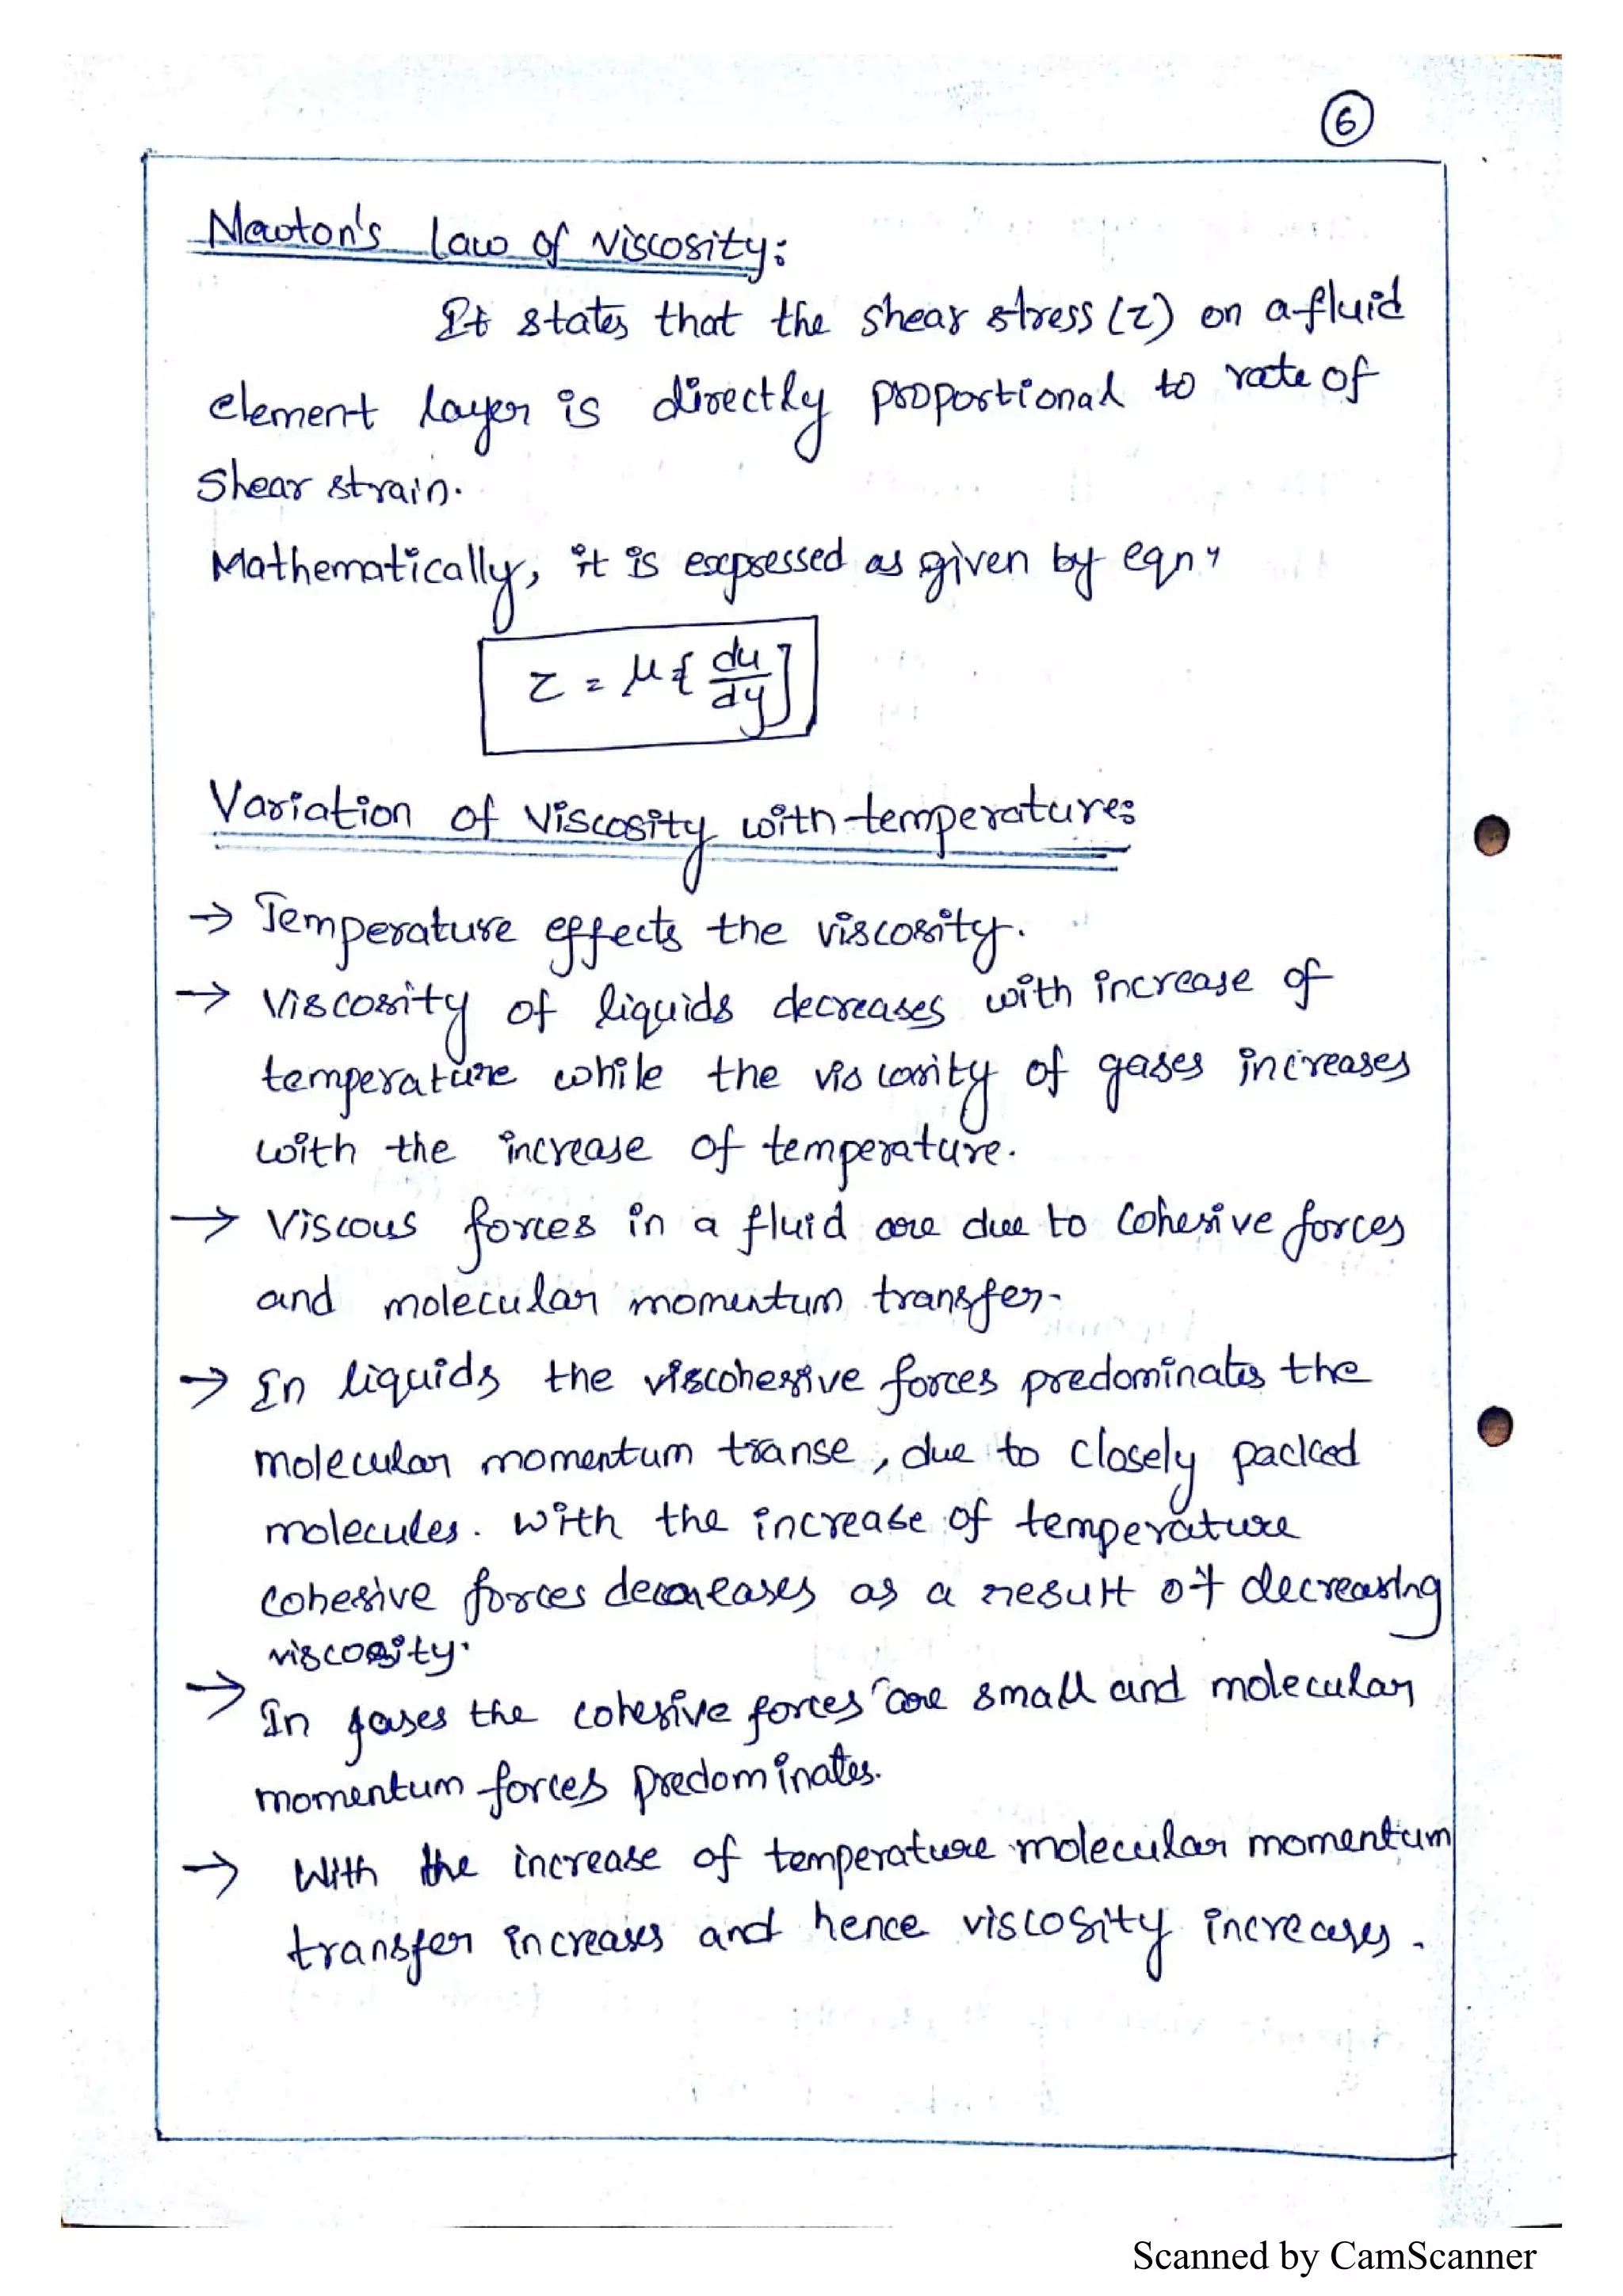 6
Newton's law of viscosity:
It states that the shear stress (τ) on a fluid
element layer is directly proportional to rate of
Shear strain.
Mathematically, it is expressed as given by eqn,
τ = μ { du/dy }
Variation of viscosity with temperature:
→ Temperature effects the viscosity.
→ Viscosity of liquids decreases with increase of
temperature while the viscosity of gases increases
with the increase of temperature.
→ Viscous forces in a fluid are due to cohesive forces
and molecular momentum transfer.
→ In liquids the viscohesive forces predominates the
molecular momentum transe, due to closely packed
molecules. With the increase of temperature
cohesive forces decreases as a result of decreasing
viscosity.
→ In gases the cohesive forces are small and molecular
momentum forces predominates.
→ With the increase of temperature molecular momentum
transfer increases and hence viscosity increases.
Scanned by CamScanner